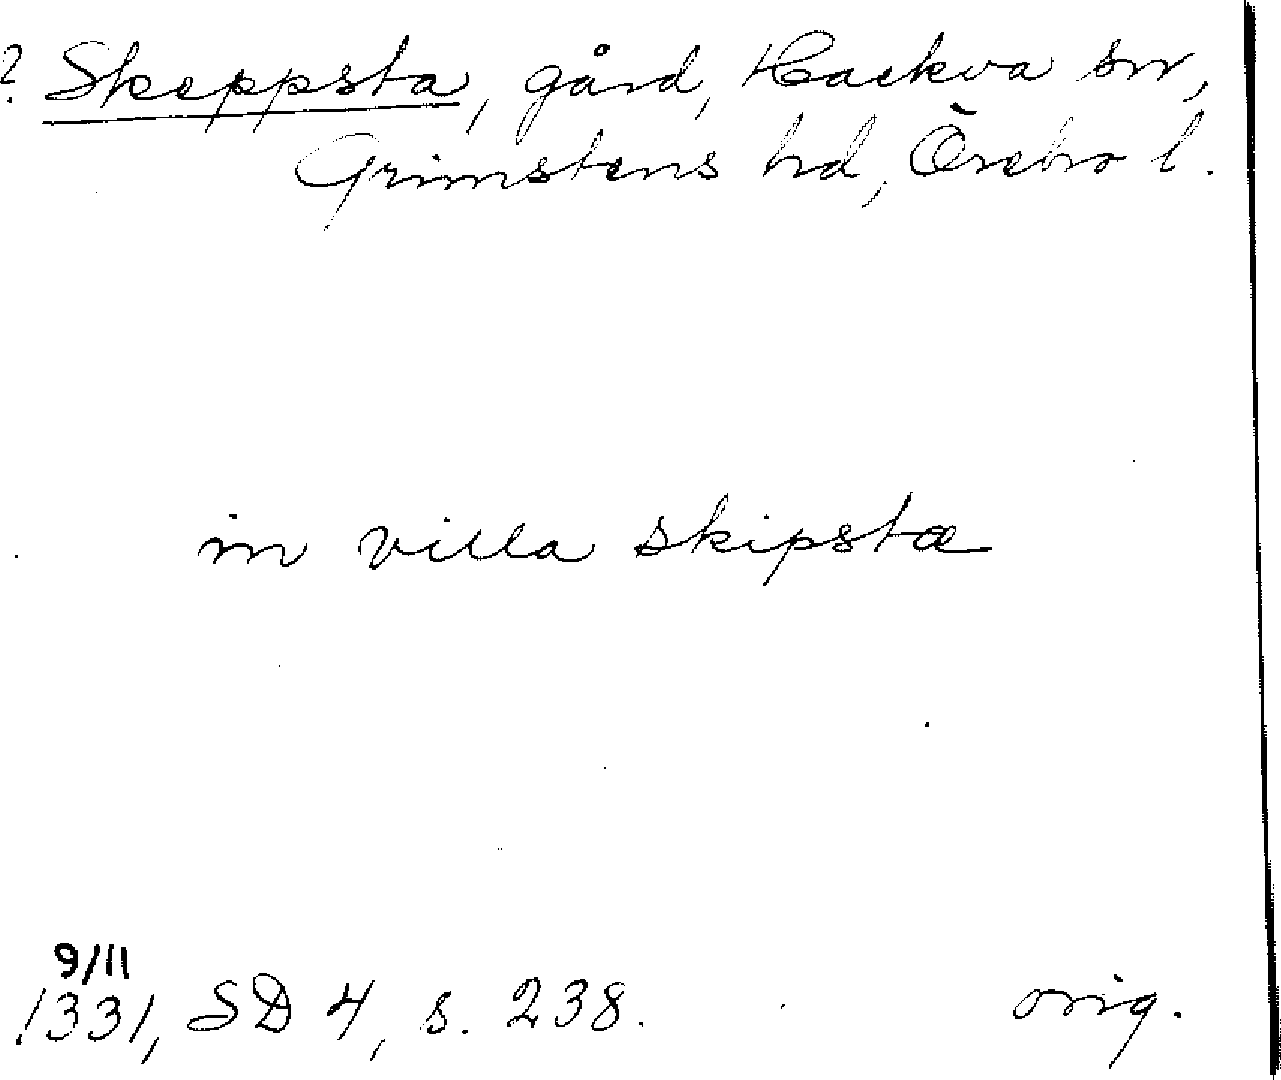 ? Skeppsta, gård, Hackva sn,
Grimstens hd, Örebro l.
in villa skipstæ
9/11
1331, SD 4, s. 238.
orig.